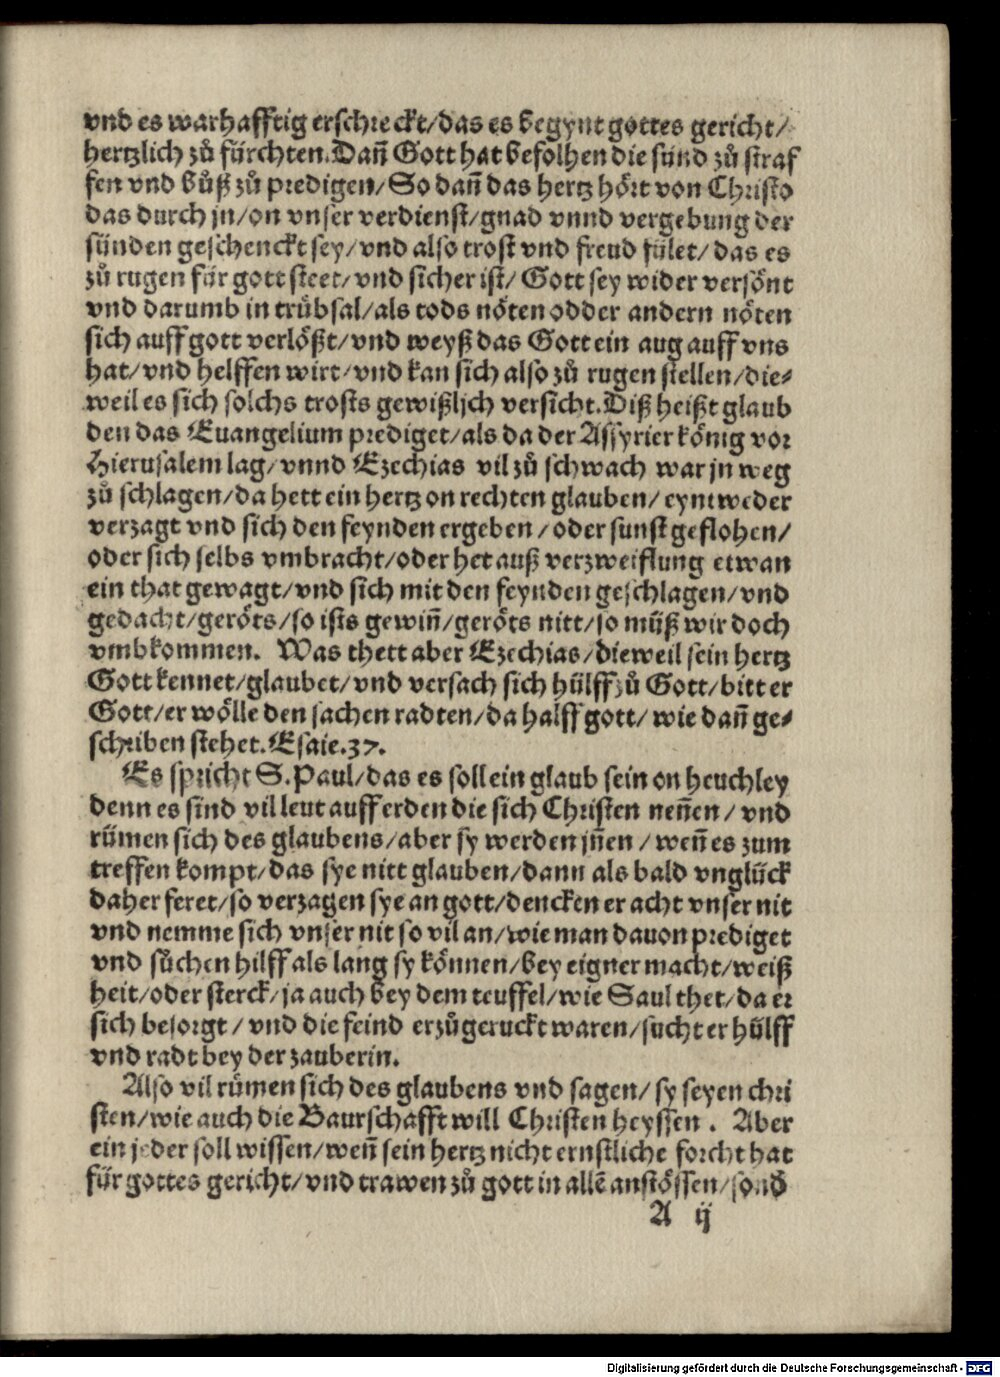 vnd es warhafftig erschreckt/das es begynt gottes gericht/
hertzlich zů fürchten. Dañ Gott hat befolhen die sünd zů straf
fen vnd bůß zů predigen/So dañ das hertz hört von Christo
das durch jn/on vnser verdienst/gnad vnnd vergebung der
sünden geschenckt sey/vnd also trost vnd freud fület/das es
zů rugen für gott steet/vnd sicher ist/Gott sey wider versönt
vnd darumb in trübsal/als tods nöten odder andern nöten
sich auff gott verlößt/vnd weyß das Gott ein aug auff vns
hat/vnd helffen wirt/vnd kan sich also zů rugen stellen/die⸗
weil es sich solchs trosts gewißljch versicht. Diß heißt glaub
den das Euangelium prediget/als da der Assyrier könig vor
Hierusalem lag/vnnd Ezechias vil zů schwach war jn weg
zů schlagen/da hett ein hertz on rechten glauben/eyntweder
verzagt vnd sich den feynden ergeben/oder sunst geflohen/
oder sich selbs vmbracht/oder het auß verzweiflung etwan
ein that gewagt/vnd sich mit den feynden geschlagen/vnd
gedacht/geröts/so ists gewiñ/geröts nitt/so müß wir doch
vmbkommen. Was thett aber Ezechias/dieweil sein hertz
Gott kennet/glaubet/vnd versach sich hülff zů Gott/bitt er
Gott/er wölle den sachen radten/da halff gott/wie dañ ge⸗
schriben stehet. Esaie.37.
Es spricht S. Paul/das es soll ein glaub sein on heuchley
denn es sind vil leut auff erden die sich Christen neñen/vnd
rümen sich des glaubens/aber sy werden jñen/weñ es zum
treffen kompt/das sye nitt glauben/dann als bald vnglück
daher feret/so verzagen sye an gott/dencken er acht vnser nit
vnd nemme sich vnser nit so vil an/wie man dauon prediget
vnd süchen hilff als lang sy können/bey eigner macht/weiß
heit/oder sterck/ja auch bey dem teuffel/wie Saul thet/da er
sich besorgt/vnd die feind erzůgeruckt waren/sucht er hülff
vnd radt bey der zauberin.
Also vil rümen sich des glaubens vnd sagen/sy seyen chri
sten/wie auch die Baurschafft will Christen heyssen. Aber
ein jeder soll wissen/weñ sein hertz nicht ernstliche forcht hat
für gottes gericht/vnd trawen zů gott in allẽ anstössen/sond
A ij
Digitalisierung gefördert durch die Deutsche Forschungsgemeinschaft - DFG